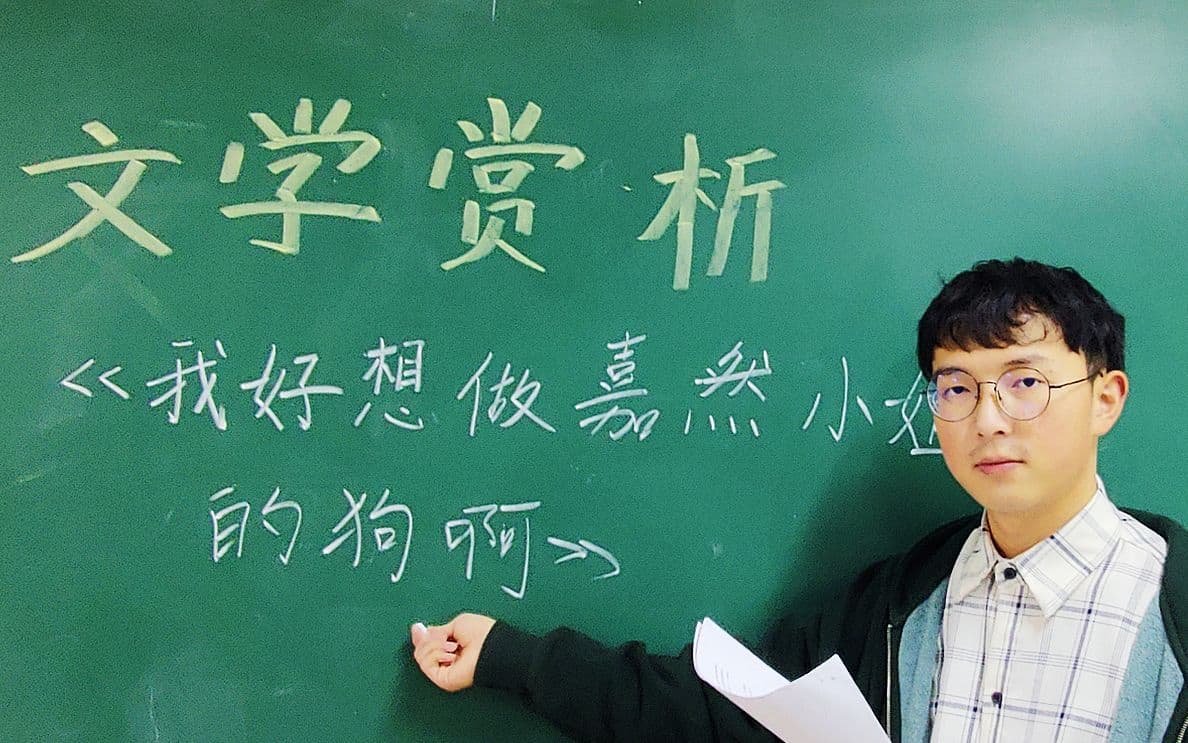 文学赏析
《我好想做嘉然小姐
的狗啊》